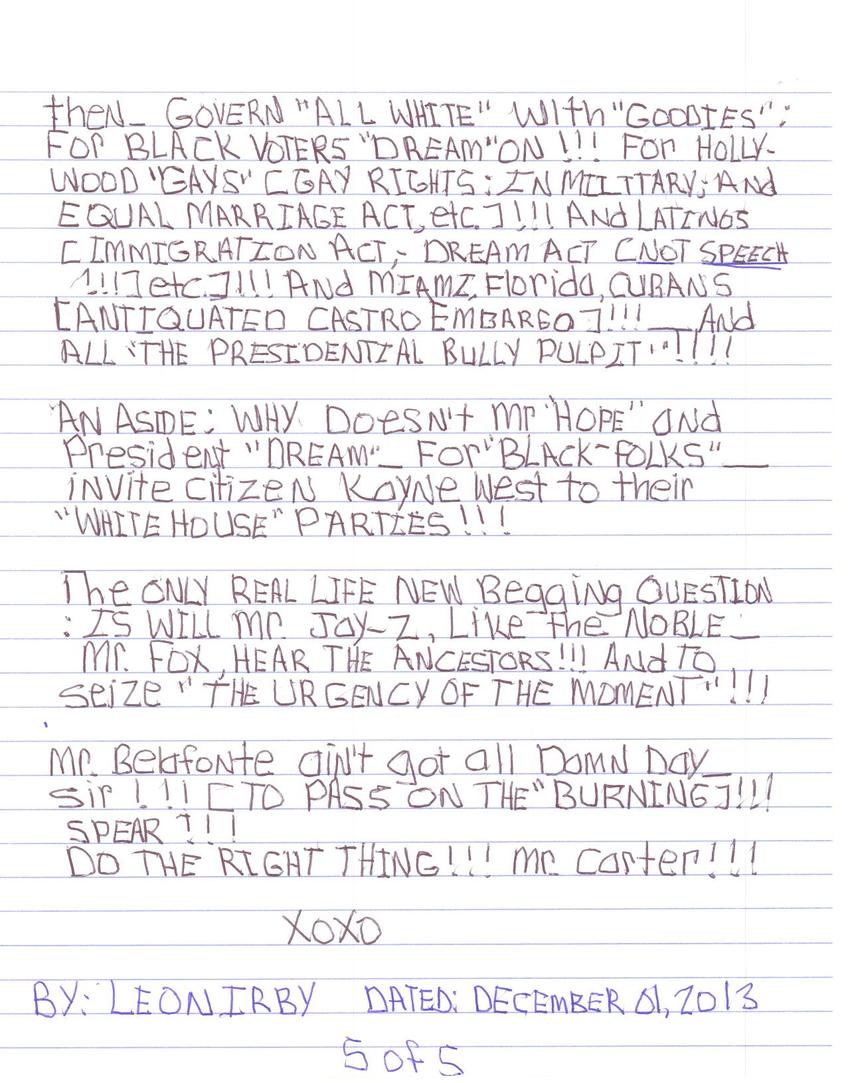 then_ GOVERN "ALL WHITE" With "GOODIES":
FOR BLACK VOTERS "DREAM" ON !!! For HOLLY-
WOOD "GAYS" [GAY RIGHTS: IN MILITARY; And
EQUAL MARRIAGE ACT, etc.]!!! And LATINOS
[IMMIGRATION ACT,- DREAM ACT [NOT SPEECH
!!!] etc.]!!! And MIAMI, Florida, CUBANS
[ANTIQUATED CASTRO EMBARGO]!!! __And
ALL "THE PRESIDENTIAL BULLY PULPIT"!!!!
AN ASIDE: WHY Doesn't Mr "HOPE" and
President "DREAM"_ For "BLACK-FOLKS"__
invite citizen Kayne West to their
"WHITE HOUSE" PARTIES!!!
The ONLY REAL LIFE NEW Begging QUESTION
: IS WILL Mr. Jay-Z, Like the NOBLE_
Mr. Fox, HEAR THE ANCESTORS!!! And TO
seize "THE URGENCY OF THE MOMENT"!!!
Mr. Belafonte ain't got all Damn Day_
sir !!! [TO PASS ON THE "BURNING]!!!
SPEAR !!!
DO THE RIGHT THING!!! Mr. Carter!!!
XOXO
BY: LEON IRBY DATED: DECEMBER 01, 2013
5 of 5